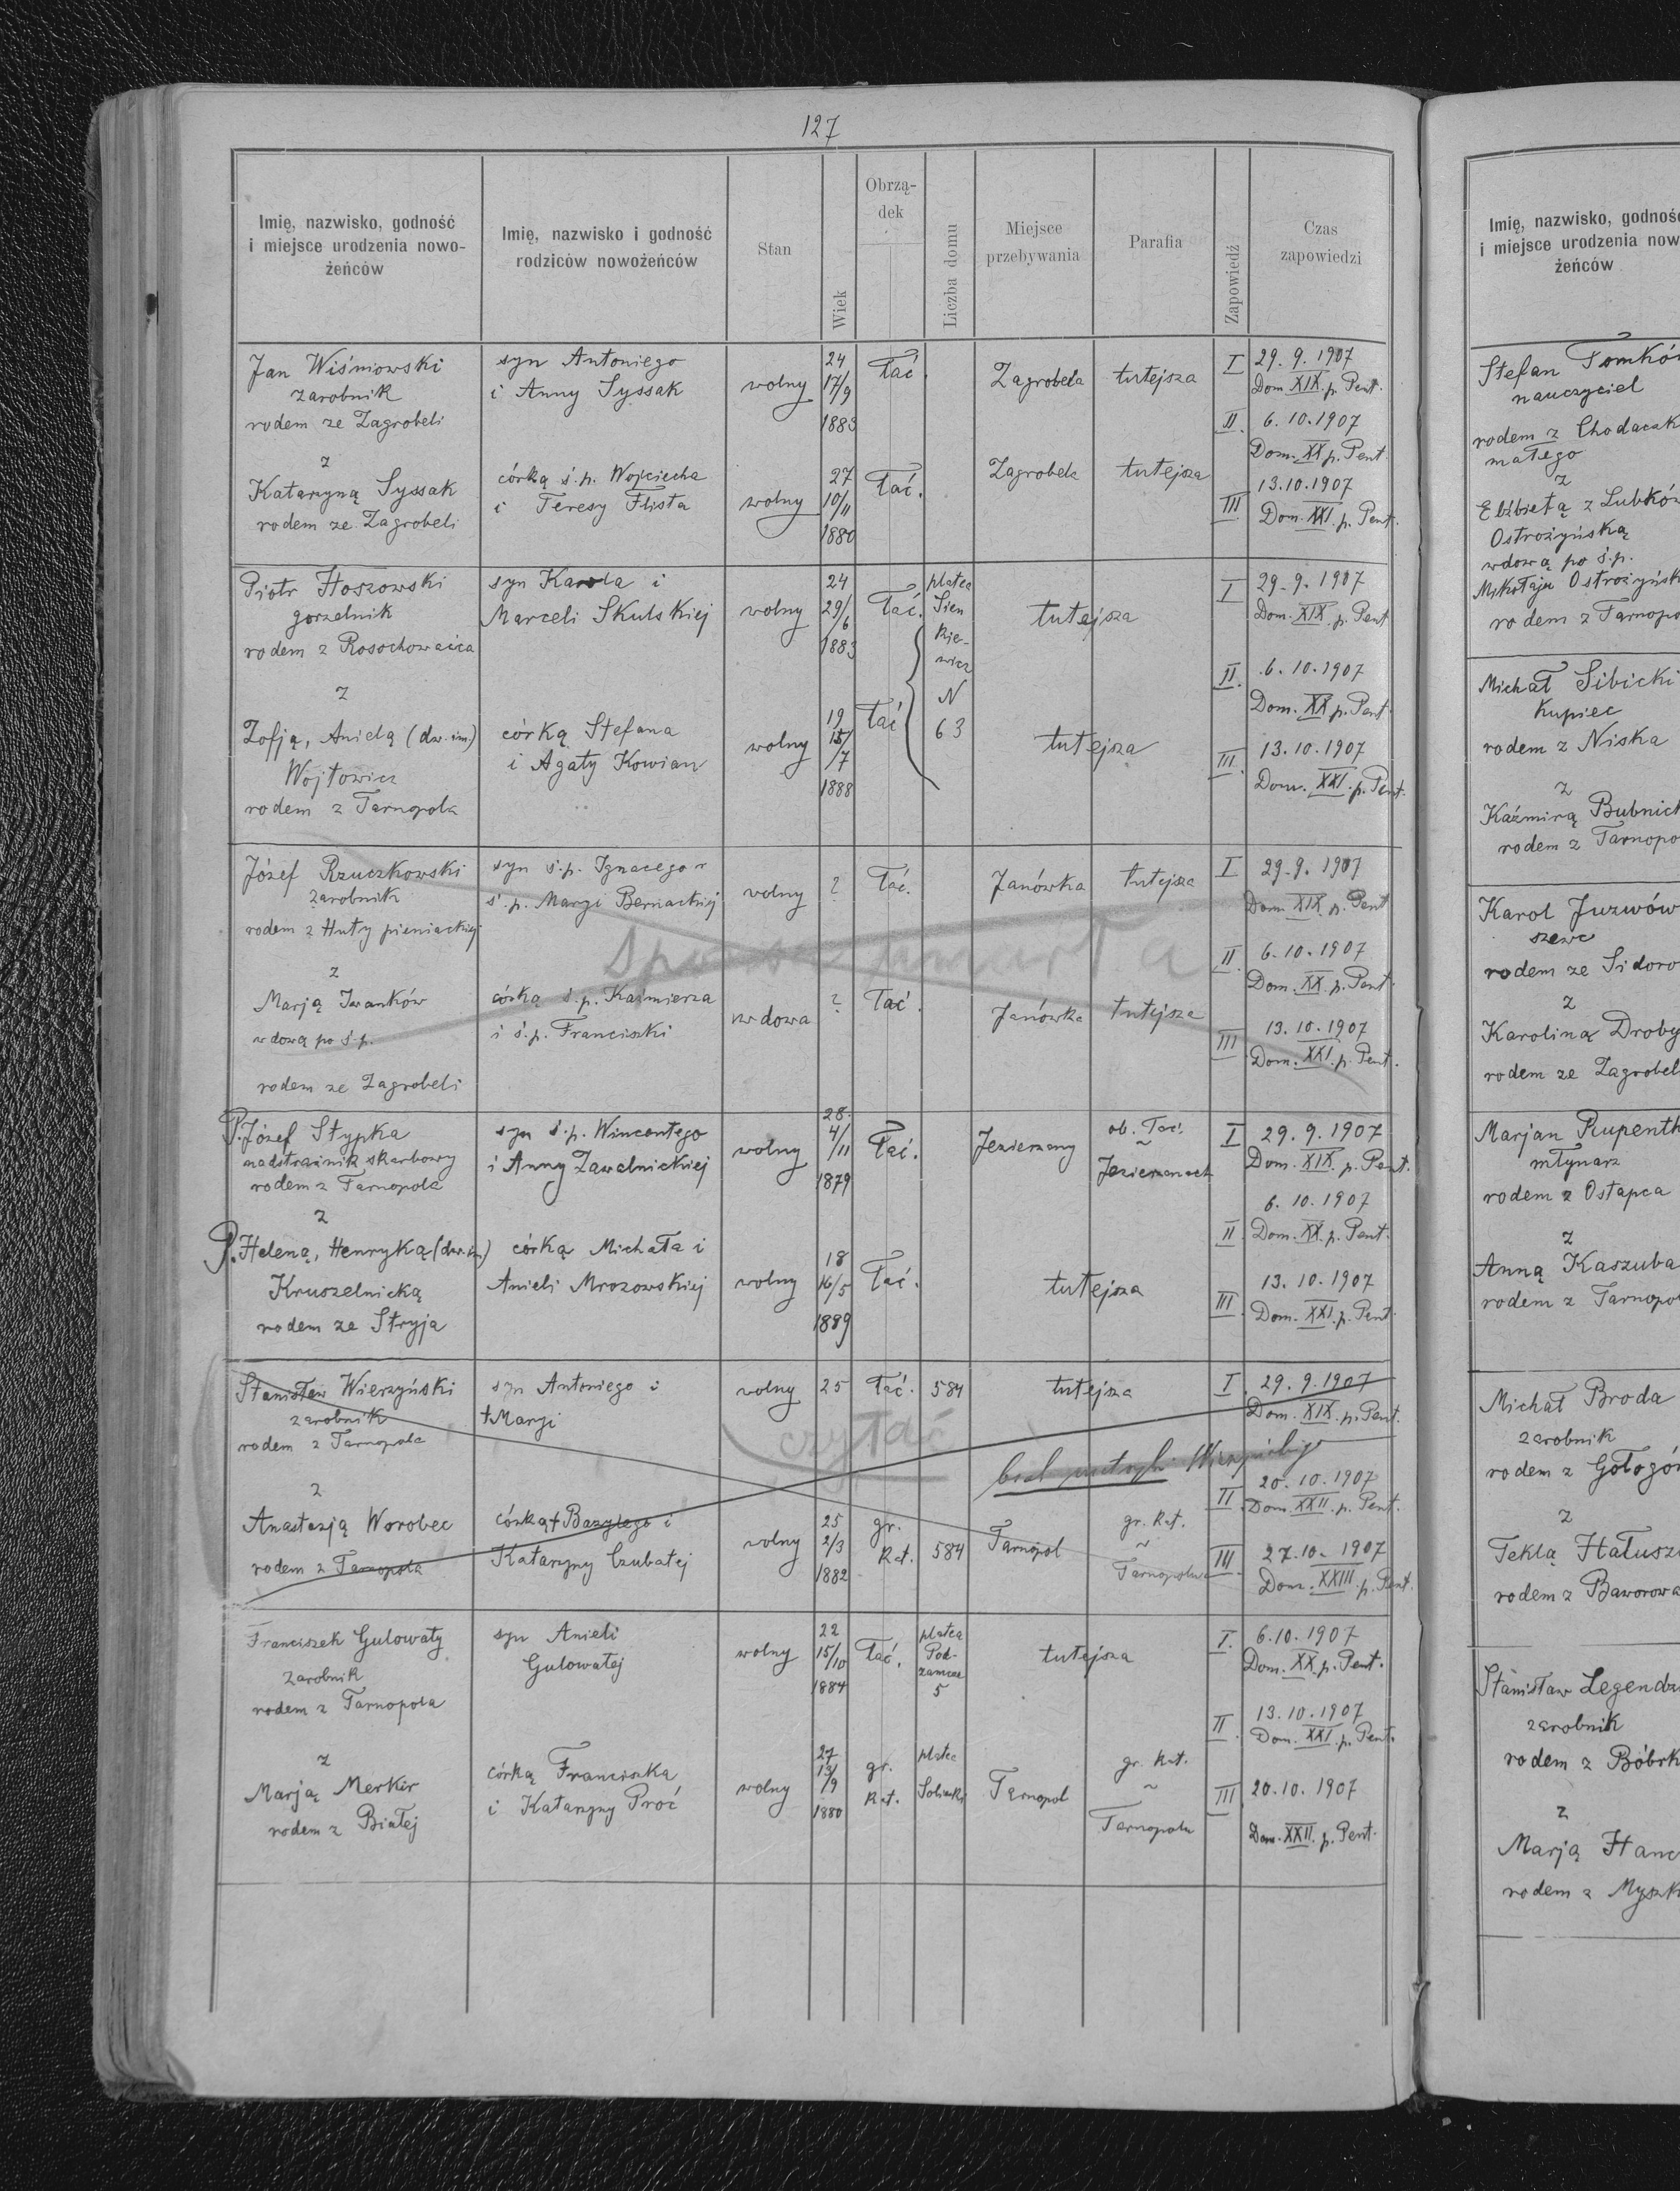 127
Imię, nazwisko, godność
i miejsce urodzenia nowo-
żeńców
Imię, nazwisko i godność
rodziców nowożeńców
Stan
Wiek
Obrzą-
dek
Liczba domu
Miejsce
przebywania
Parafia
Zapowiedź
Czas
zapowiedzi
Jan Wiśniowski
zarobnik
rodem ze Zagrobeli
syn Antoniego
i Anny Syssak
wolny
24
17/9
1883
łać.
Zagrobela
tutejsza
I 29. 9. 1907
Dom XIX. p. Pent.
II. 6. 10. 1907
Dom. XX p. Pent.
z
Katarzyną Syssak
rodem ze Zagrobeli
córką ś.p. Wojciecha
i Teresy Flista
wolny
27
10/11
1880
łać.
Zagrobela
tutejsza
III 13.10.1907
Dom. XXI. p. Pent.
Piotr Hoszowski
gorzelnik
rodem z Rosochowaćca
syn Karola i
Marceli Skulskiej
wolny
24
29/6
1883
łać.
platea
Sien
kie-
wicz
N
63
tutejsza
I 29.9.1907
Dom. XIX. p. Pent
II. 6.10.1907
Dom. XX p. Pent.
z
Zofją, Anielą (dw. im.)
Wojtowicz
rodem z Tarnopola
córką Stefana
i Agaty Kowian
wolny
19
15/7
1888
łać
tutejsza
III. 13.10.1907
Dom. XXI. p. Pent.
Józef Rzuczkowski
zarobnik
rodem z Huty pieniackiej
syn ś.p. Ignacego
ś.p. Maryi Bernackiej
wolny
?
łać.
Janówka
tutejsza
I 29.9.1907
Dom. XIX. p. Pent
umarła
II 6.10.1907
Dom. XX. p. Pent.
z
Marją Iwanków
wdową po ś.p.
rodem ze Zagrobeli
córką ś.p. Kaźmierza
i ś.p. Franciszki
wdowa
?
łać.
Janówka
tutejsza
III 13. 10. 1907
Dom. XXI. p. Pent.
P. Józef Stypka
nadstrażnik skarbowy
rodem z Tarnopola
syn ś.p. Wincentego
i Anny Zawalnickiej
wolny
28
4/11
1879
łać.
Jezierzany
ob. łać.
~
Jezierzanach
I 29. 9. 1907
Dom. XIX. p. Pent.
6. 10. 1907
II Dom. XX. p. Pent.
z
P. Heleną, Henryką (dw. im)
Kruszelnicką
rodem ze Stryja
córką Michała i
Anieli Mrozowskiej
wolny
18
16/5
1889
łać.
tutejsza
13. 10. 1907
III. Dom. XXI. p. Pent.
Stanisław Wierzyński
zarobnik
rodem z Tarnopola
syn Antoniego i
+Maryi
wolny
25
łać.
584
tutejsza
I 29. 9. 1907
Dom. XIX. p. Pent.
czytać
II 20. 10. 1907
Dom. XXII. p. Pent.
z
Anastazją Worobec
rodem z Tarnopola
córką + Bazylego i
Katarzyny Czubatej
wolny
25
2/3
1882
gr.
kat.
584
Tarnopol
gr. kat.
~
III 27.10. 1907
Dom. XXIII. p. Pent.
Franciszek Gulowaty
zarobnik
rodem z Tarnopola
syn Anieli
Gulowatej
wolny
22
15/10
1884
łać.
platea
Pod-
zamcze
5
tutejsza
I. 6.10.1907
Dom. XX p. Pent.
II 13.10.1907
Dom. XXI. p. Pent.
z
Marją Merkir
rodem z Białej
córką Franciszka
i Katarzyny Proć
wolny
27
13/9
1880
gr.
kat.
platea
Tarnopol
gr. kat.
~
Tarnopola
III 20.10. 1907
Dom. XXII. p. Pent.
Imię, nazwisko, godność
i miejsce urodzenia now
żeńców
Stefan Tomków
nauczyciel
rodem z Chodaczk
małego
z
Elżbietą z Lubków
Ostrożyńską
wdową po ś.p.
Mikołaju Ostrożyńsk
rodem z Tarnopo
Michał Sibicki
kupiec
rodem z Niska
z
Kaźmirą Bubnick
rodem z Tarnopo
Karol Juzwów
szewc
rodem ze Sidoro
z
Karoliną Droby
rodem ze Zagrobel
Marjan Rupenth
młynarz
rodem z Ostapca
z
Anną Kaszuba
rodem z Tarnopo
Michał Broda
zarobnik
rodem z Gołogór
z
Teklą Hałuszc
rodem z Baworowa
Stanisław Legendz
zarobnik
rodem z Bóbrk
z
Marją Hanc
rodem z Myszk